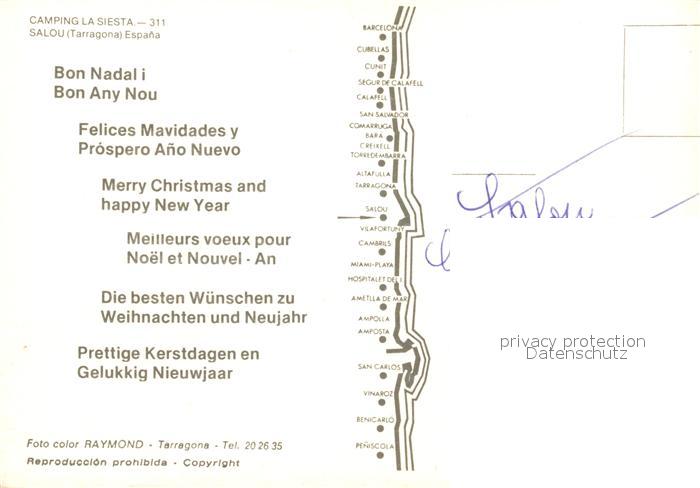 CAMPING LA SIESTA.— 311
SALOU (Tarragona) España
Bon Nadal i
Bon Any Nou
Felices Mavidades y
Próspero Año Nuevo
Merry Christmas and
happy New Year
Meilleurs voeux pour
Noël et Nouvel - An
Die besten Wünschen zu
Weihnachten und Neujahr
Prettige Kerstdagen en
Gelukkig Nieuwjaar
Foto color RAYMOND - Tarragona - Tel. 20 26 35
Reproducción prohibida - Copyright
BARCELONA
CUBELLAS
CUNIT
SEGUR DE CALAFELL
CALAFELL
SAN SALVADOR
COMARRUGA
BARA
CREIXELL
TORREDEMBARRA
ALTAFULLA
TARRAGONA
SALOU
VILAFORTUNY
CAMBRILS
MIAMI-PLAYA
HOSPITALET DEL I.
AMETLLA DE MAR
AMPOLLA
AMPOSTA
SAN CARLOS
VINAROZ
BENICARLO
PEÑISCOLA
Salou
privacy protection
Datenschutz